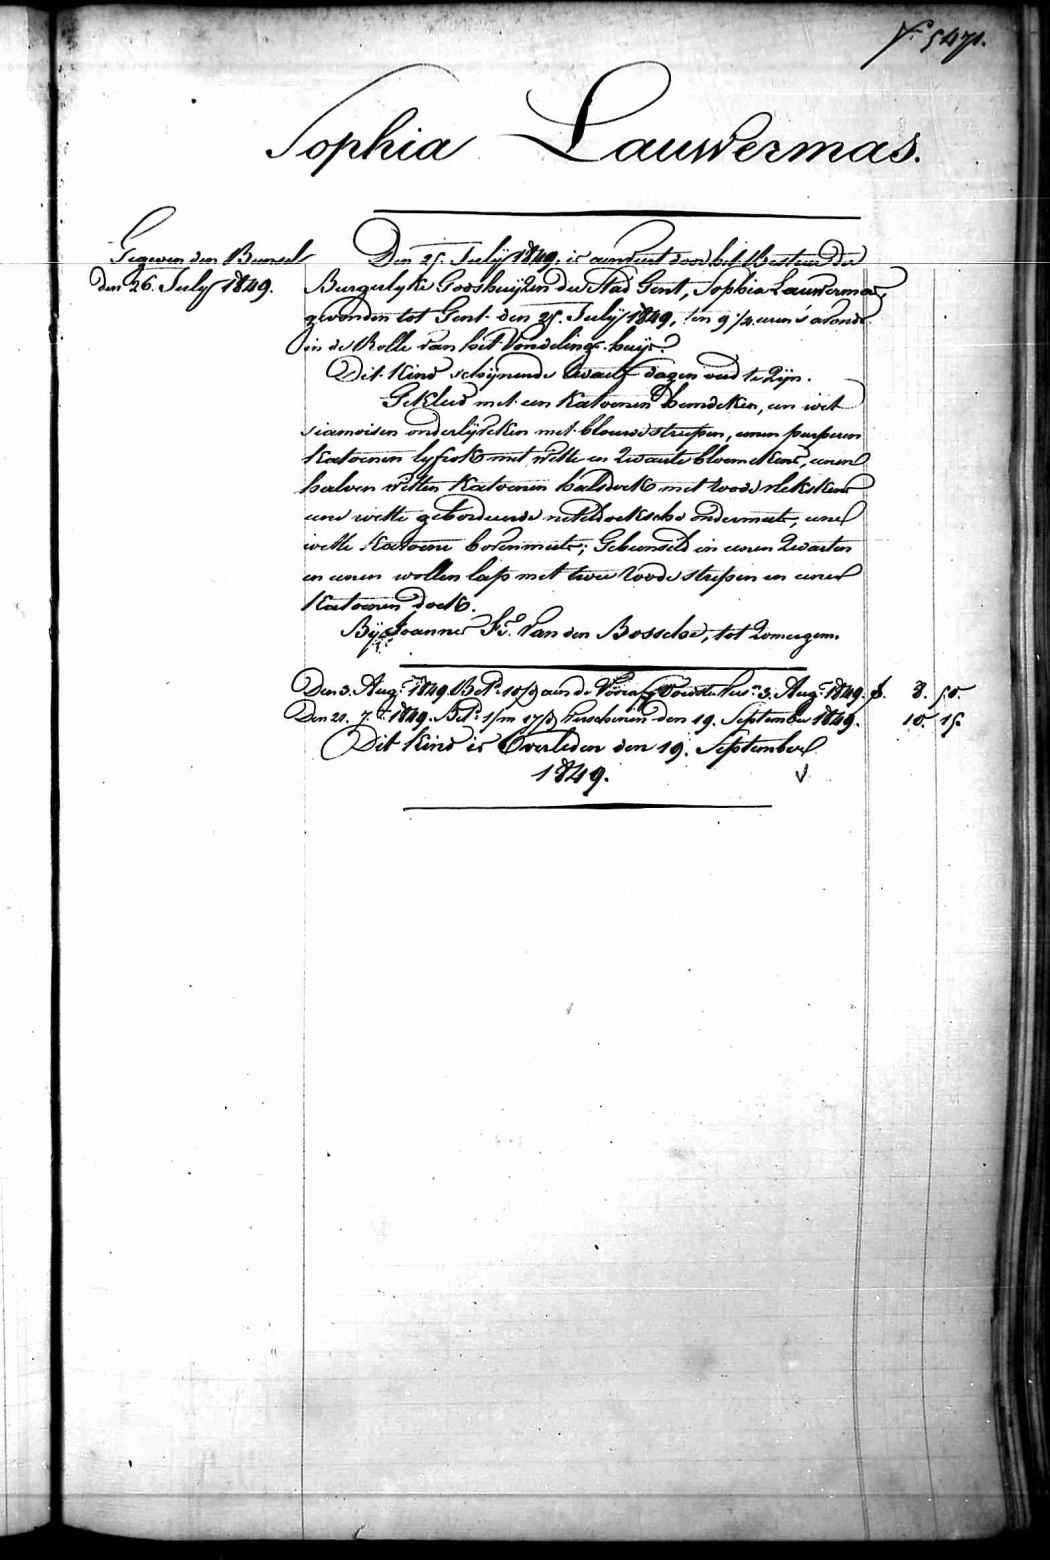 F.° 5471.
Sophia Lauwermas.
Gegeven den Bunsel
den 26. July 1849.
Den 25. Julij 1849, is aenveert door het Bestuer der
Burgerlyke Godshuijzen der Stad Gent, Sophia Lauwermas,
gevonden tot Gent den 25. Julij 1849, ten 9 1/4 uren 's avonds
in de Rolle van het Vondelings-huijs.
Dit Kind schijnende twaelf dagen oud te Zijn.
Gekleed met een Katoenen hemdeken, een wit
siamoisen onderlijveken met blouwe streepen, eenen purperen
Katoenen lyfrok met witte en Zwarte bloemekens, eenen
halven witten Katoenen halsdoek met roode vlekskens
eene witte geborduerde neteldoeksche ondermuts, eene
witte Katoene bovenmuts; Gebunseld in eenen Zwarten
en eenen wollen lap met twee roode strepen en eenen
Katoenen doek.
Bij Joannes Fs. Van den Bossche, tot Zomergem.
Den 3. Aug. 1849. Bet. 10 aen de Voster 3. Aug. 1849. f. 8. 50.
Den 21. 7.b 1849. Bet. 1/m 17 verschenen den 19. September 1849. 10. 15.
Dit Kind is Overleden den 19. September
1849.